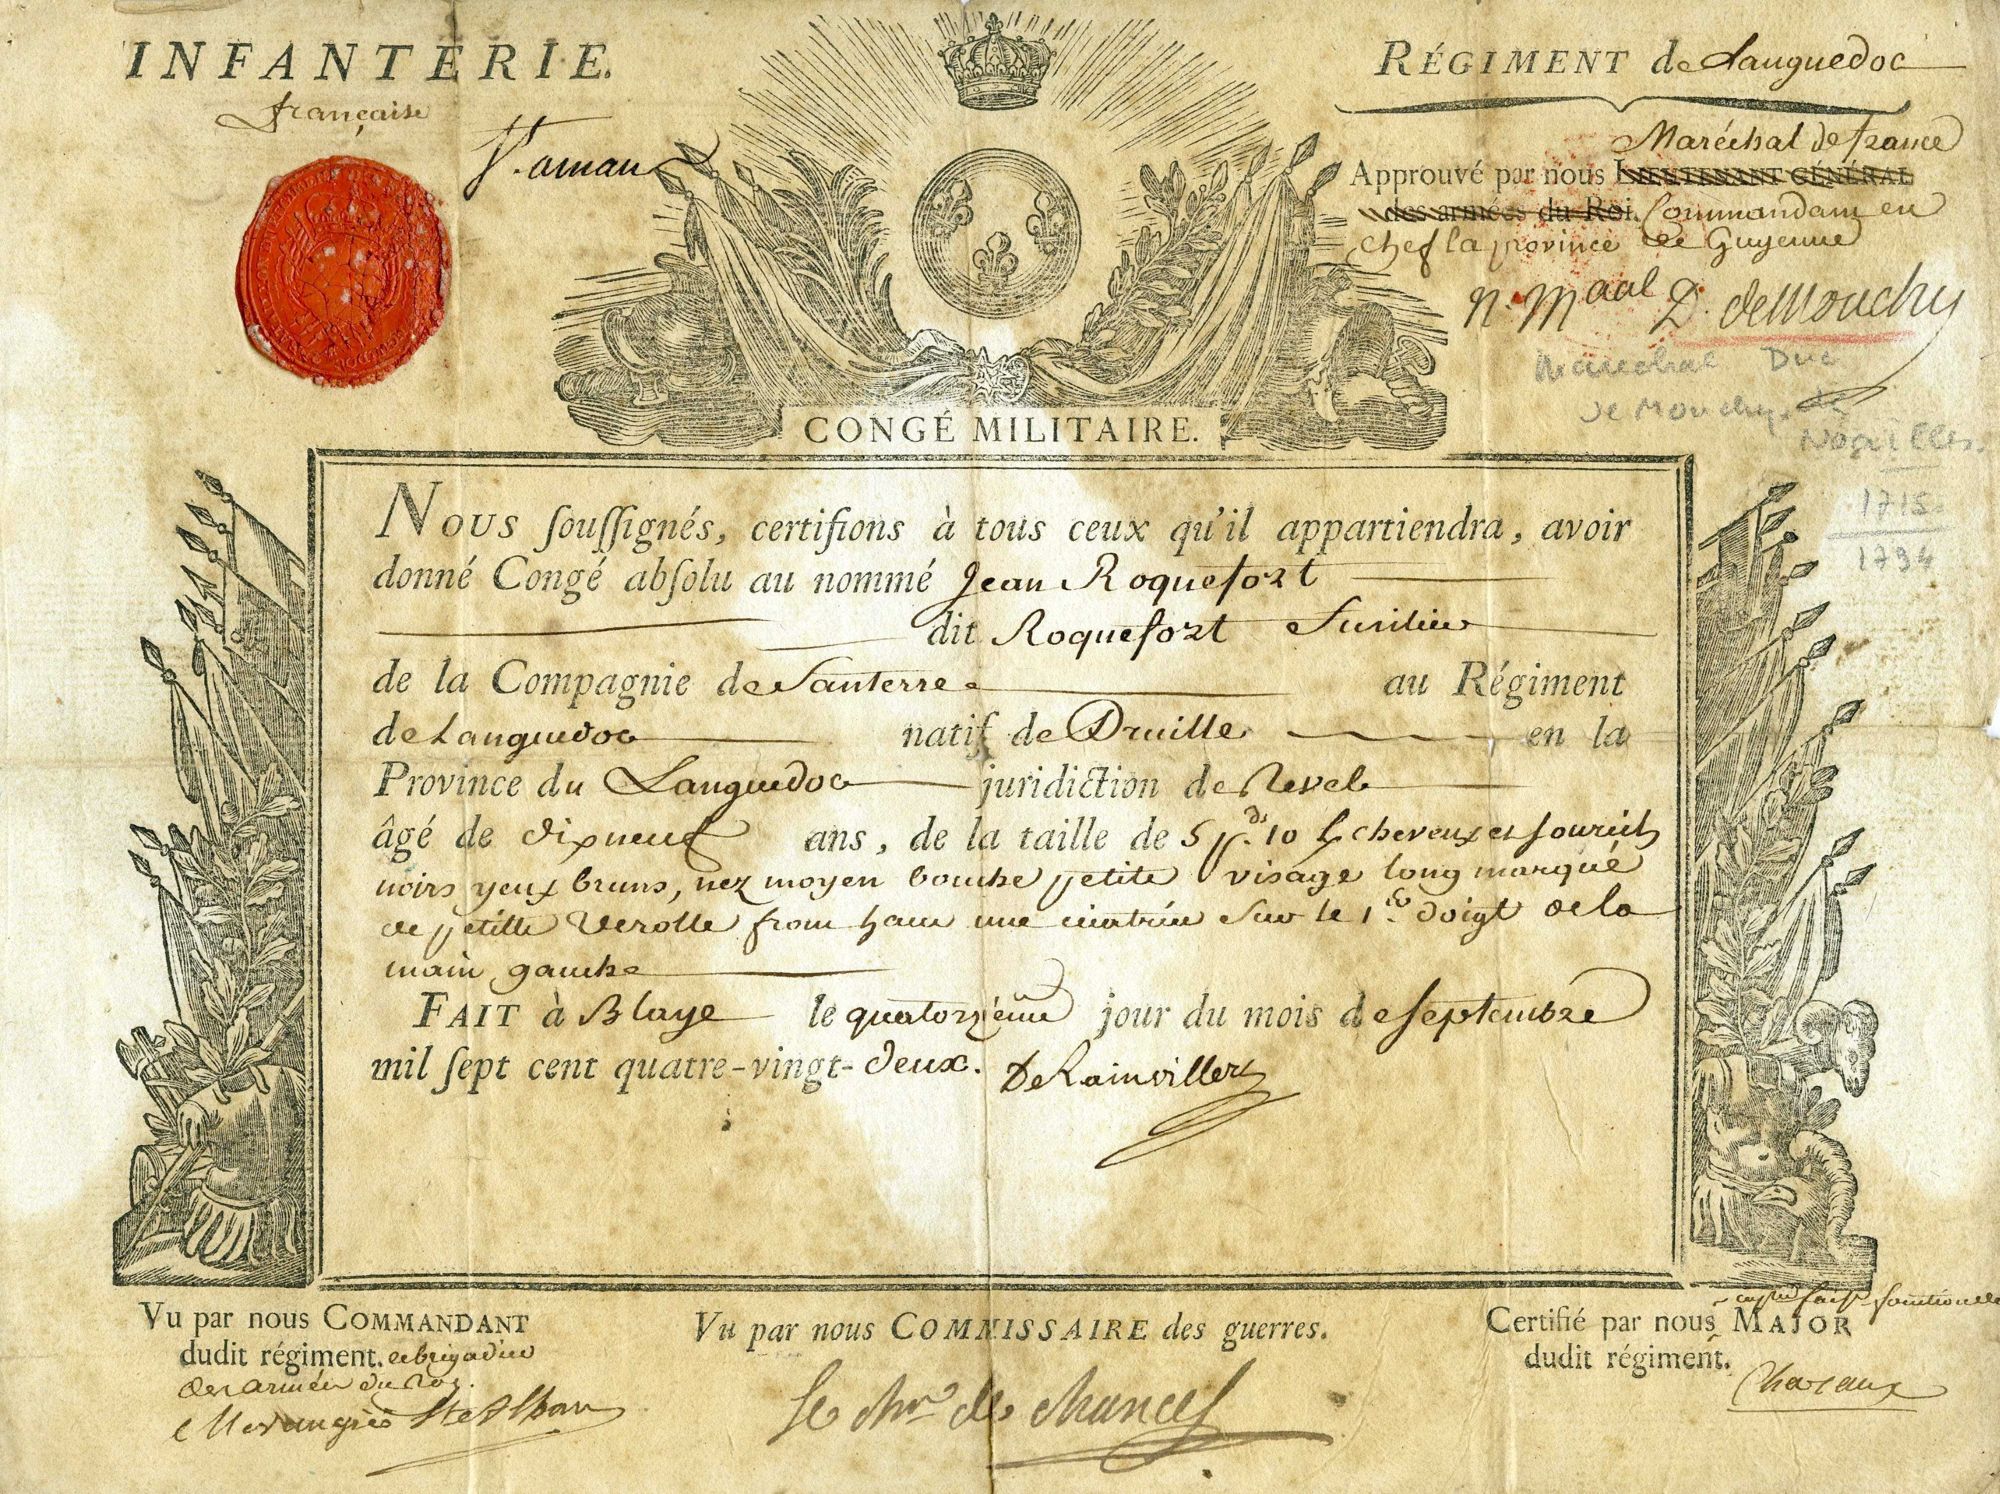 INFANTERIE.
française
RÉGIMENT de Languedoc
Maréchal de france
Approuvé par nous LIEUTENANT GÉNÉRAL
des armées du Roi. Commandant en
chef la province de Guyenne
N. Maal D. de Mouchy
Marechal Duc
de Mouchy. de
Noailles.
1715
1794
CONGÉ MILITAIRE.
Nous souſſignés, certifions à tous ceux qu'il appartiendra, avoir
donné Congé abſolu au nommé Jean Roquefort
dit Roquefort fusilier
de la Compagnie de Santerre au Régiment
de Languedoc natif de Druille en la
Province du Languedoc juridiction de Revel
âgé de dixneuf ans, de la taille de 5 pds. 10 l cheveux et sourcils
noirs yeux bruns, nez moyen bouche petite visage long marqué
de petitte verolle front haut une cicatrice sur le 1er doigt de la
main gauche
FAIT à Blaye le quatorzième jour du mois de septembre
mil ſept cent quatre-vingt-deux. De Rainvillers
Vu par nous COMMANDANT
dudit régiment. et brigadier
des armées du Roi.
Vu par nous COMMISSAIRE des guerres.
Le Mis de
Certifié par nous MAJOR
dudit régiment.